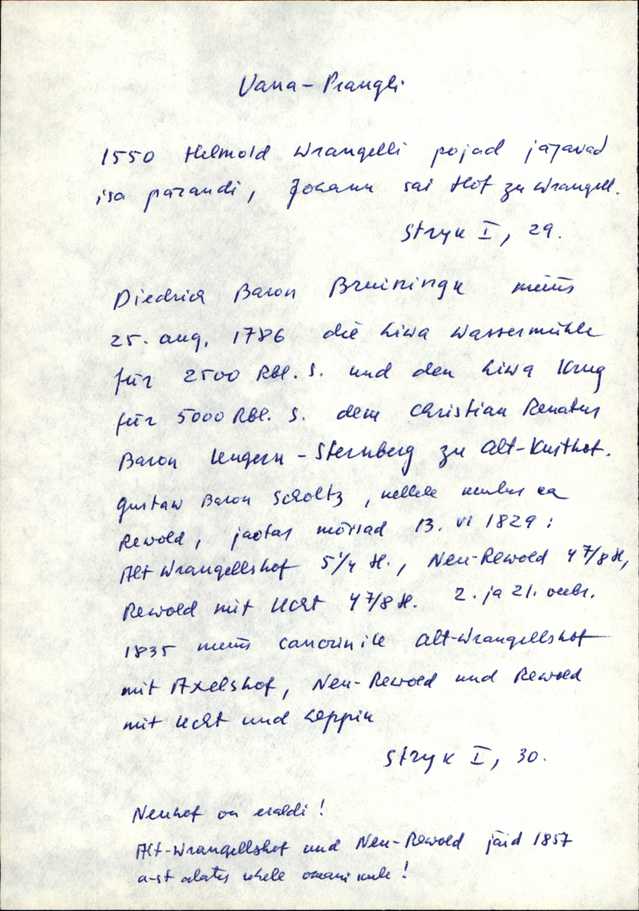 Vana-Prangli
1550 Helmold Wrangelli pojad jagavad
isa pärandi, Johann sai Hof zu Wrangell.
Stryk I, 29.
Diedrich Baron Bruiningk müüs
25. aug. 1786 die Liwa Wassermühle
für 2500 Rbl. S. und den Liwa Krug
für 5000 Rbl. S. dem Christian Renatus
Baron Ungern-Sternberg zu Alt-Kusthof.
Gustaw Baron Scholtz, kellele kuulus ka
Rewold, jaotas mõisad 13. VI 1829:
Alt Wrangellshof 5 1/4 H., Neu-Rewold 4 7/8 H,
Rewold mit Ucht 4 7/8 H. 2. ja 21. veebr.
1835 müüs Alt-Wrangellshof
mit Axelshof, Neu-Rewold und Rewold
mit Ucht und Leppin
Stryk I, 30.
Neuhof on eraldi!
Alt-Wrangellshof und Neu-Rewold jäid 1857
a-st alates ühele omanikule!